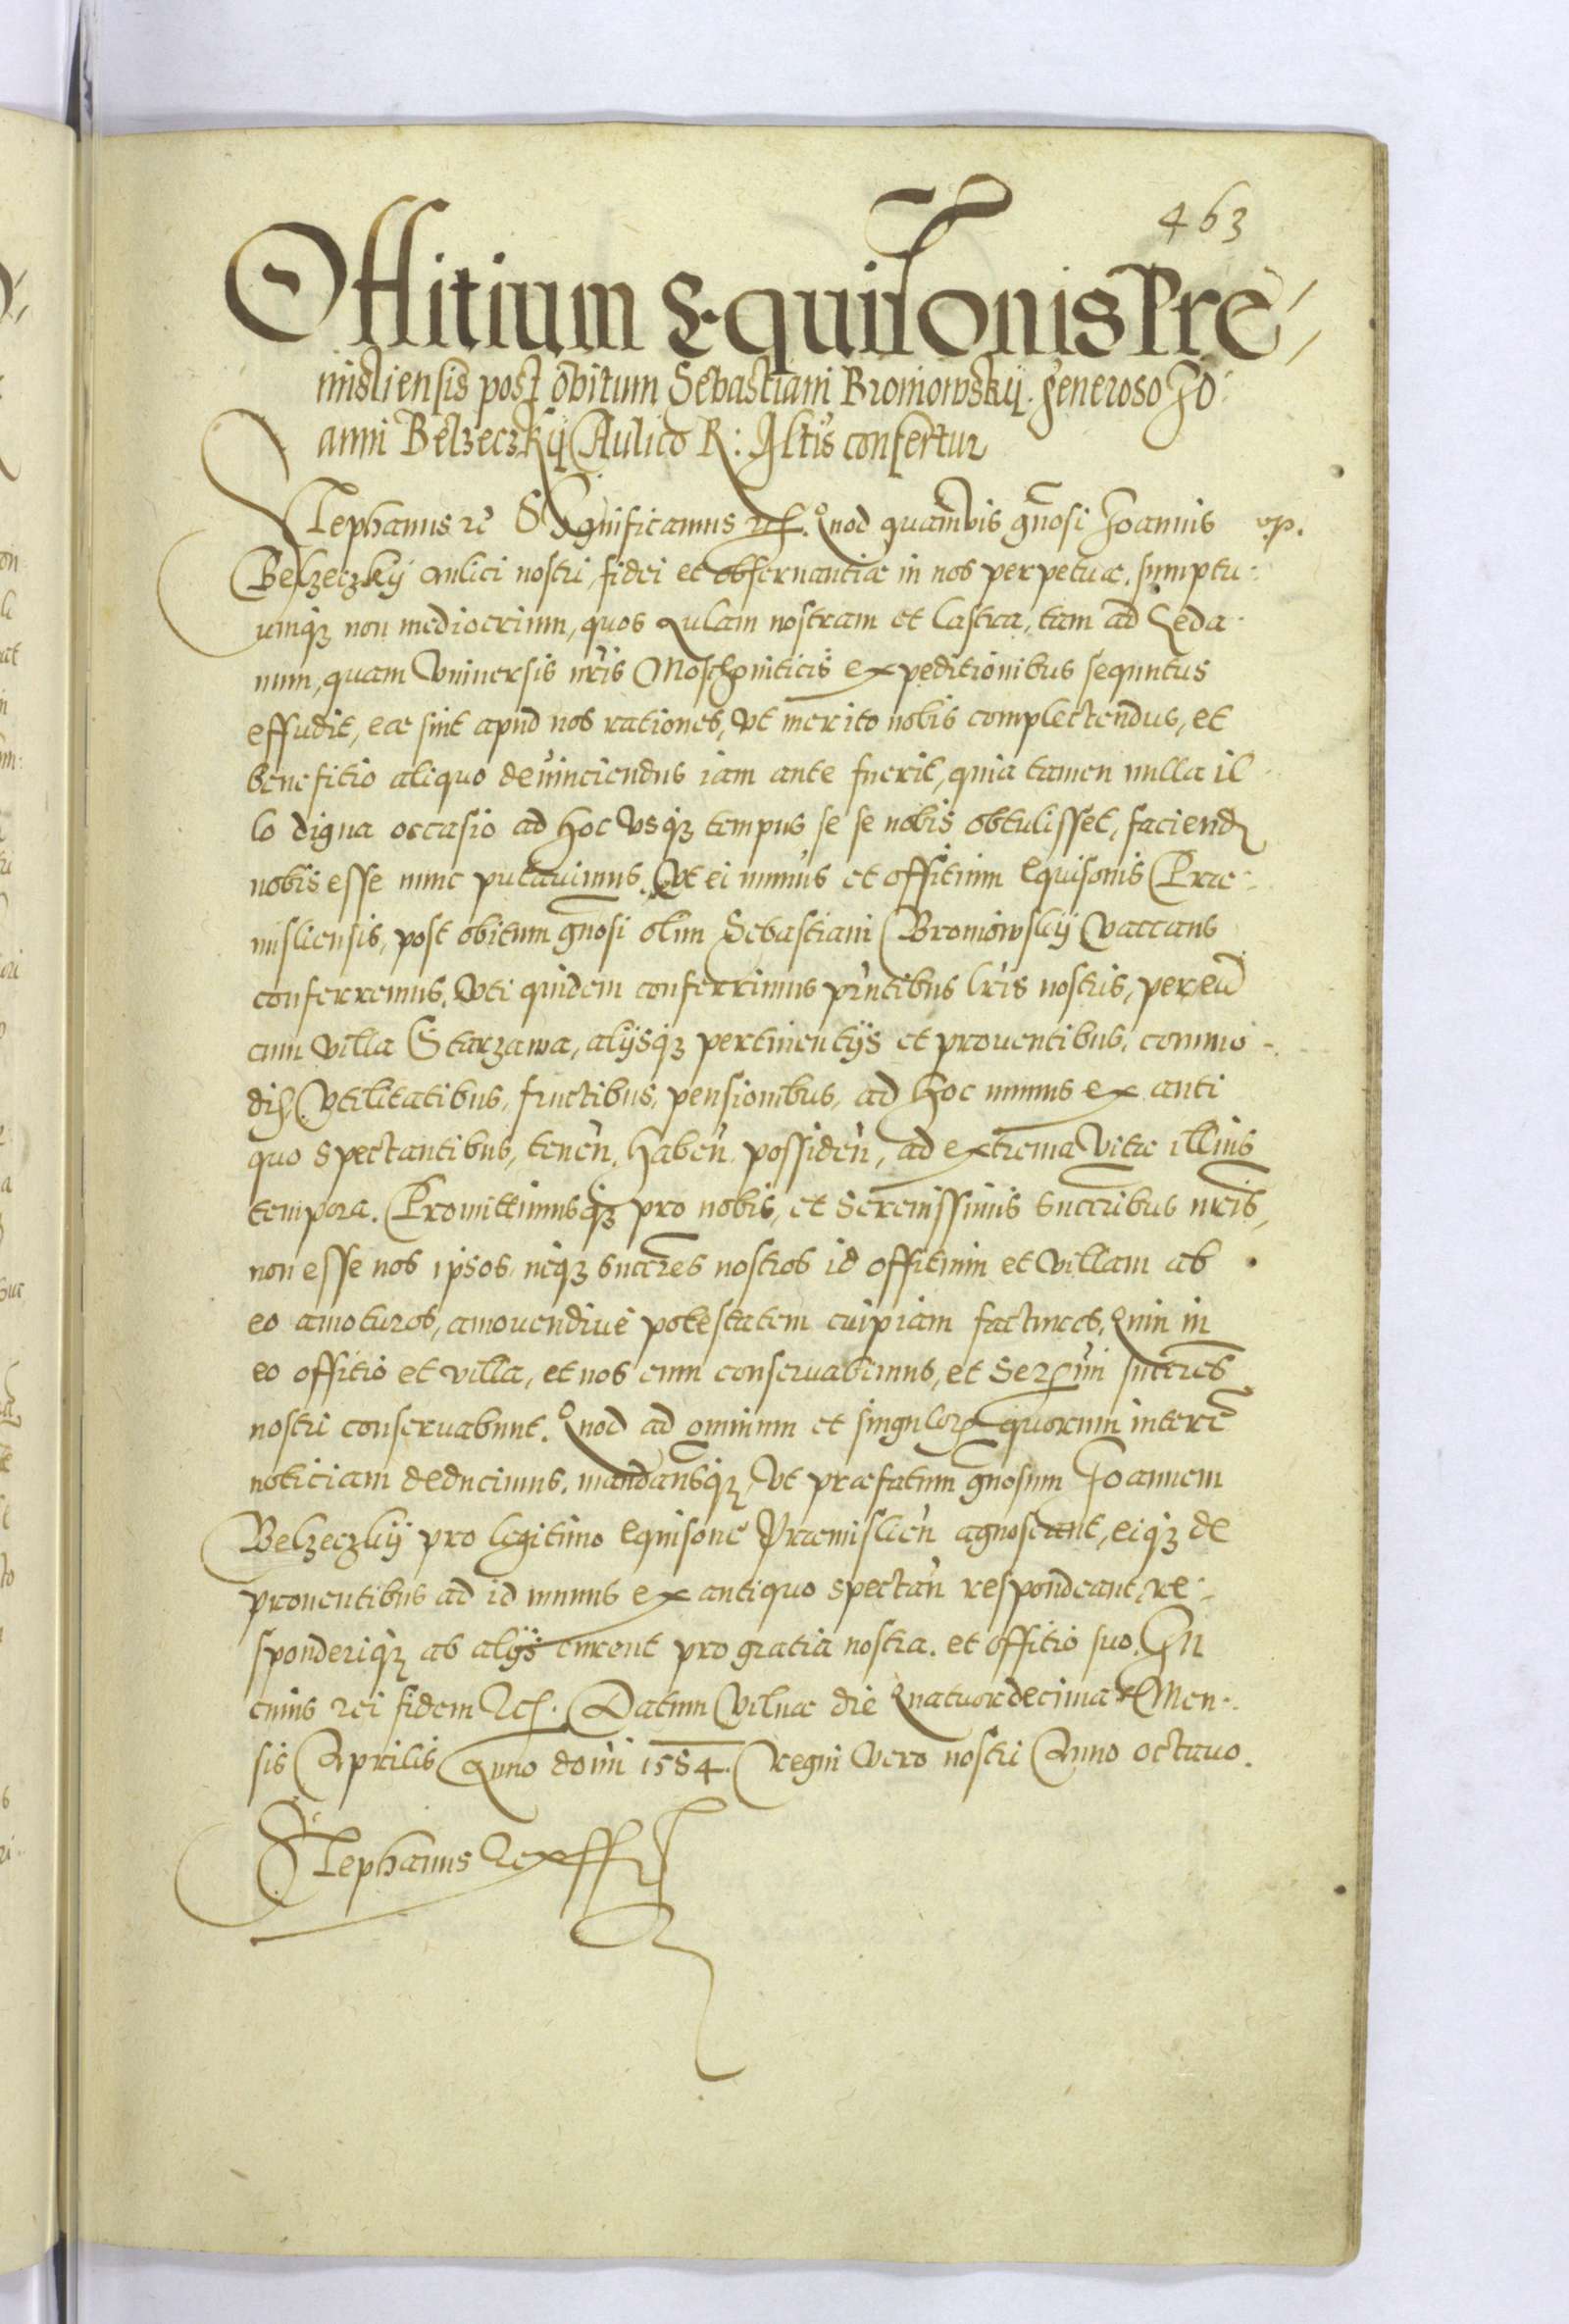 463
Offitium Equisonis Pre-
misliensis post obitum Sebastiani Broniowskij. generoso Jo-
anni Belzeczkij Aulico R: Mtis confertur
Stephanus rc Significamus rc. Quod quamvis gnosi Joannis
Belzeczkij aulici nostri, fidei et obseruantiæ in nos perpetuæ, sumptu-
umq3 non mediocrium, quos Aulam nostram et Castra, tam ad Geda-
num, quam Vniuersis nris Moschouiticis expeditionibus sequutus
effudit, eæ sint apud nos rationes, vt merito nobis complectendus, et
benefitio aliquo deuinciendus iam ante fuerit, quia tamen nulla il-
lo digna occasio ad hoc vsq3 tempus se se nobis obtulisset, faciend
nobis esse nunc putauimus. Vt ei munus et offitium Equisonis Præ-
misliensis, post obitum gnosi olim Sebastiani Broniowskij vaccans
conferremus, vti quidem conferrimus pntibus lris nostris, per eu
cum villa Starzawa, alijsq3 pertinentijs et prouentibus, commo-
dis, vtilitatibus, fructibus, pensionibus, ad hoc munus ex anti
quo spectantibus, tenen, haben possiden, ad extrema vitæ illius
tempora. Promittimusq3 pro nobis, et Serenissimis succribus nris,
non esse nos ipsos neq3 succres nostros id offitium et villam ab
eo amoturos, amouendiue potestatem cuipiam facturos, Quin in
eo offitio et villa, et nos eum conseruabimus, et Sermi succres
nostri conseruabunt. Quod ad omnium et singulor quorum intere
noticiam deducimus, mandansq3 vt præfatum gnosum Joannem
Belzeczkij pro legitimo Equisone Præmislien agnoscant, eiq3 de
prouentibus ad id munus ex antiquo spectan respondeant, re-
sponderiq3 ab alijs curent pro gratia nostra. et offitio suo. In
cuius rei fidem rc. Datum Vilnæ die Quatuordecima Men-
sis Aprilis Anno domi 1584. Regni vero nostri Anno octauo.
Stephanus Rex ss